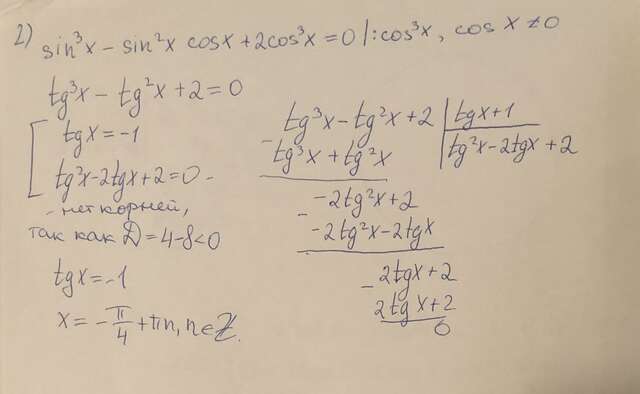 2) sin³x – sin²x cosx + 2cos³x = 0 |: cos³x, cos x ≠ 0
tg³x – tg²x + 2 = 0
tgx = -1
tg²x – 2tgx + 2 = 0 –
– нет корней,
так как D = 4 – 8 < 0
tgx = -1
x = -π/4 + πn, n ∈ Z.
tg³x – tg²x + 2 | tgx + 1
tg³x + tg²x | tg²x – 2tgx + 2
– -2tg²x + 2
-2tg²x – 2tgx
– 2tgx + 2
2tgx + 2
0